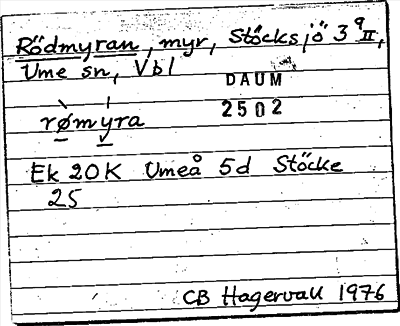 Rödmyran, myr, Stöcksjö 3 9 II,
Ume sn, Vbl
DAUM
2502
rømyra
Ek 20K Umeå 5d Stöcke
25
CB Hagervall 1976